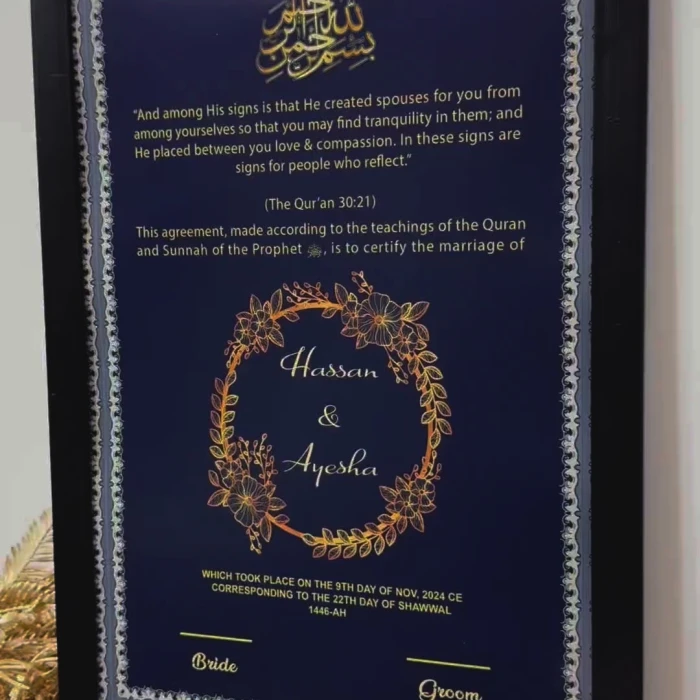 بسم الله الرحمن الرحيم
“And among His signs is that He created spouses for you from
among yourselves so that you may find tranquility in them; and
He placed between you love & compassion. In these signs are
signs for people who reflect.”
(The Qur’an 30:21)
This agreement, made according to the teachings of the Quran
and Sunnah of the Prophet ﷺ, is to certify the marriage of
Hassan
&
Ayesha
WHICH TOOK PLACE ON THE 9TH DAY OF NOV, 2024 CE
CORRESPONDING TO THE 22TH DAY OF SHAWWAL
1446-AH
Bride
Groom